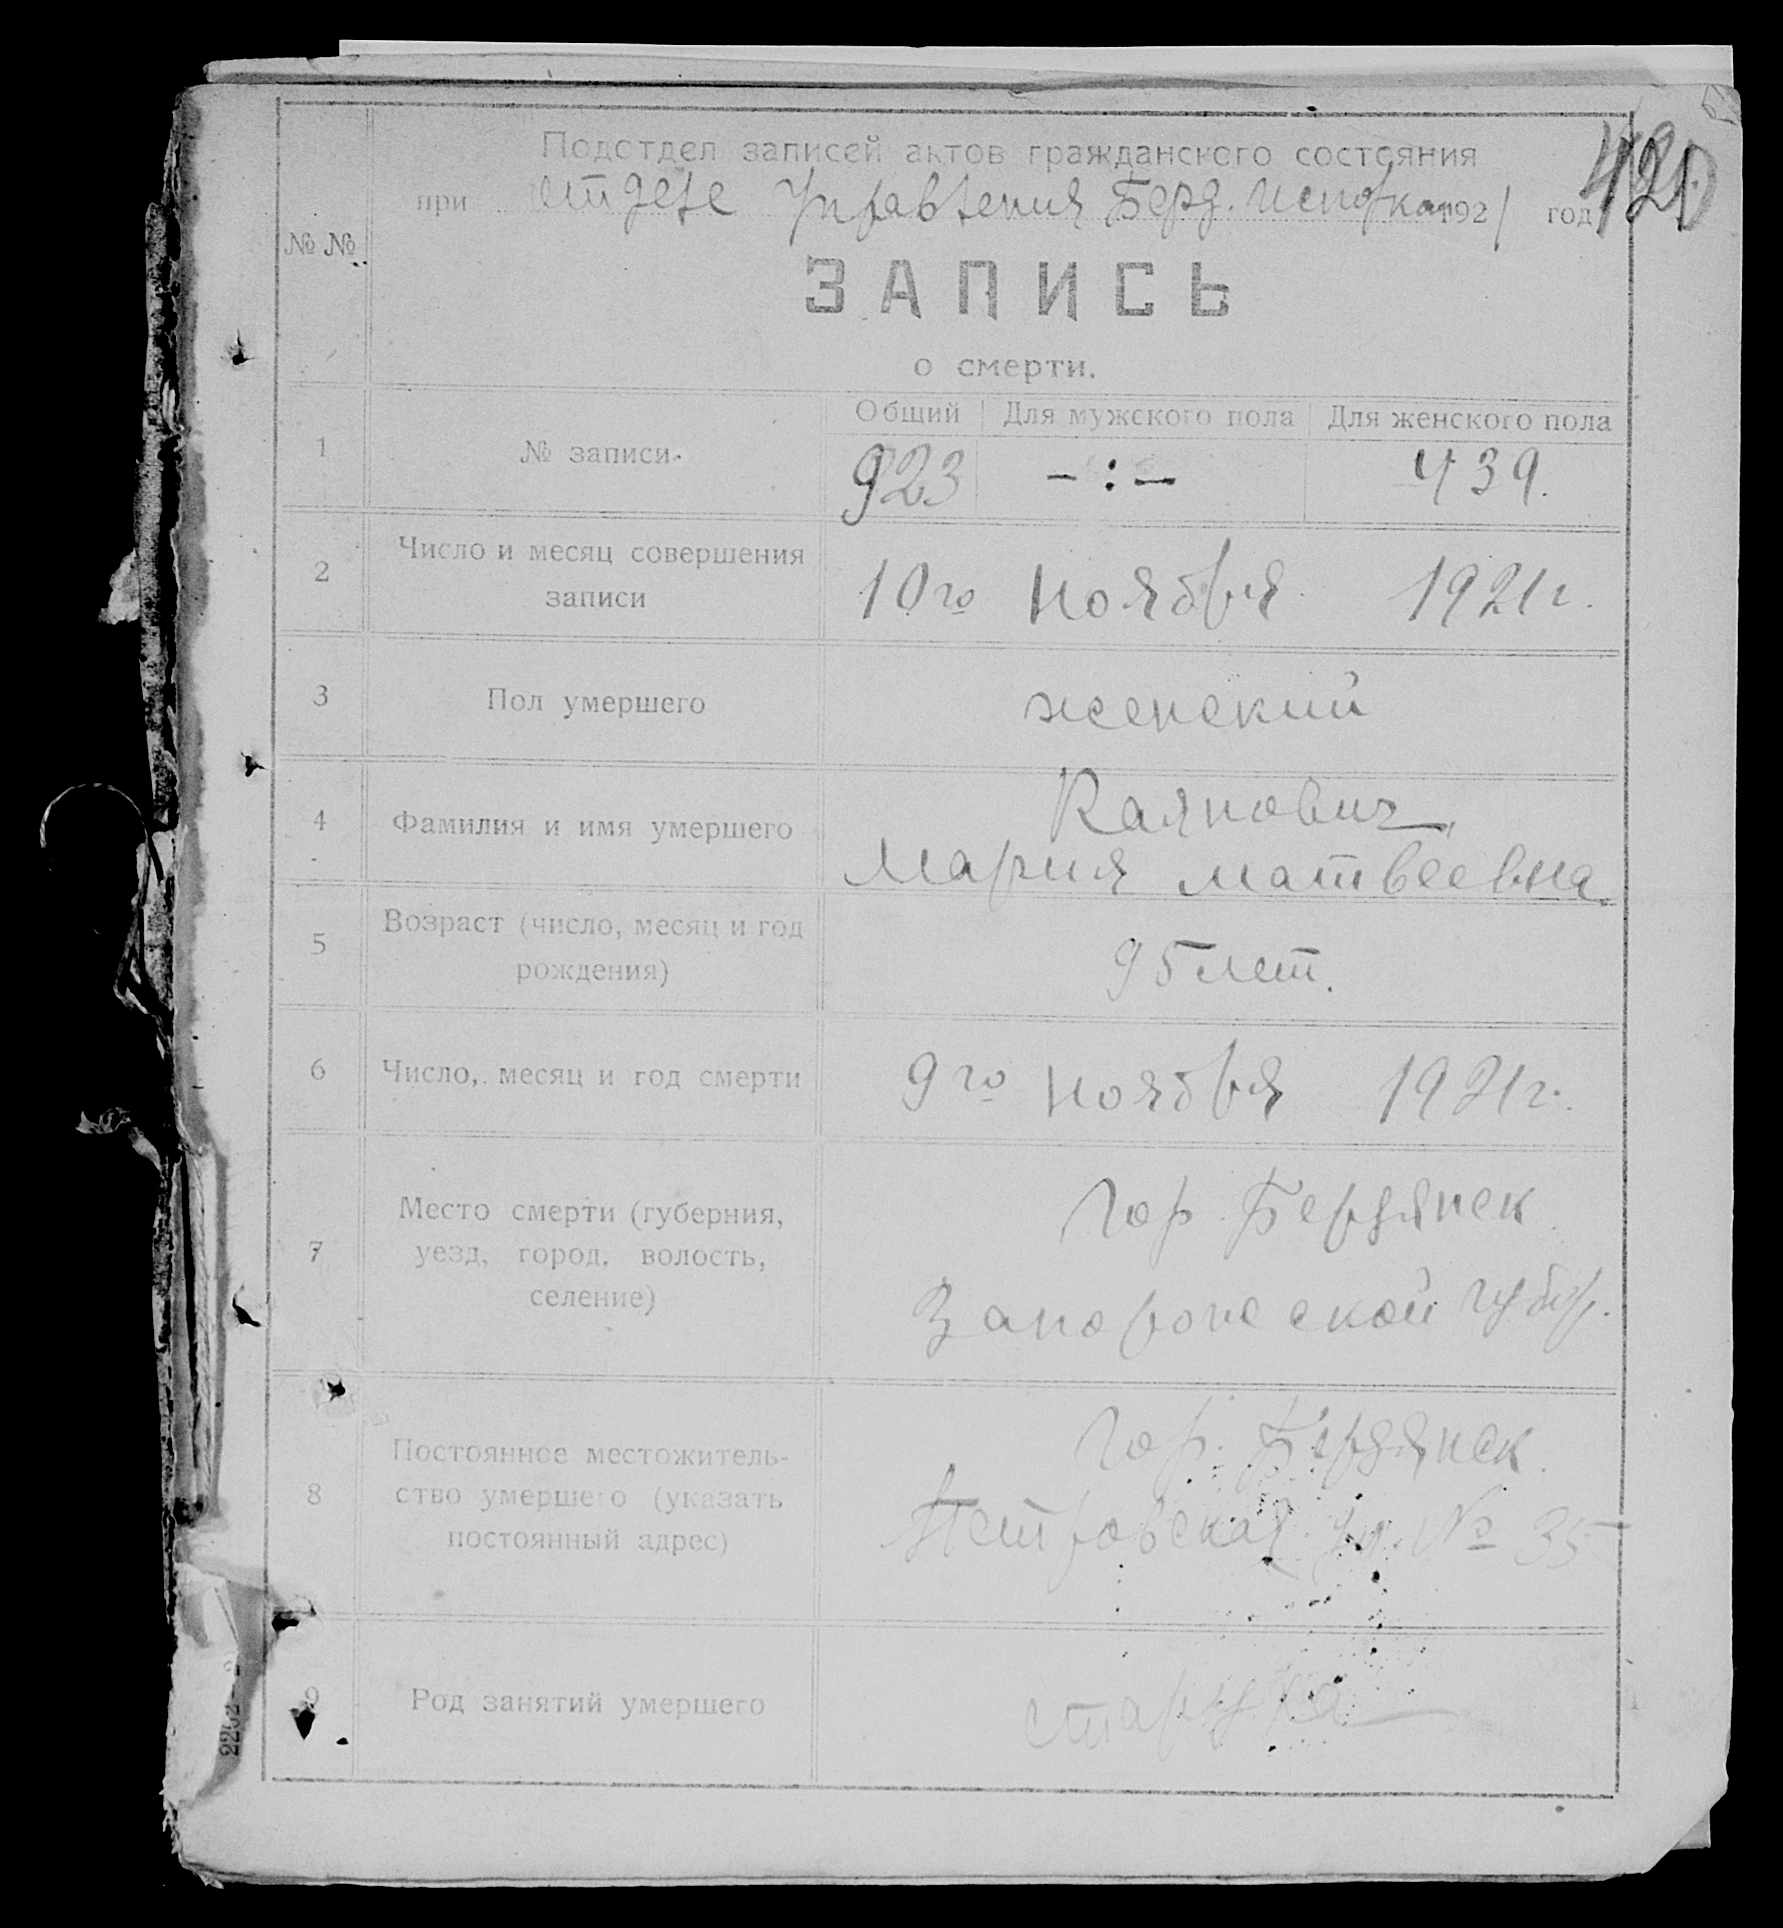 420
Подотдел записей актов гражданского состояния
при отделе Управления Берд. исполкома 1921 год
№ №
ЗАПИСЬ
о смерти.
Общий Для мужского пола Для женского пола
1 № записи. 923 -:- 439.
2 Число и месяц совершения
записи
10го Ноября 1921г.
3 Пол умершего женский
4 Фамилия и имя умершего Каянович,
Мария Матвеевна
5 Возраст (число, месяц и год
рождения)
95 лет.
6 Число, месяц и год смерти 9го Ноября 1921г.
7 Место смерти (губерния,
уезд, город, волость,
селение)
Гор. Бердянск
Запорожской губер.
8 Постоянное местожитель-
ство умершего (указать
постоянный адрес)
Гор. Бердянск.
Петровская ул. № 35
9 Род занятий умершего старуха